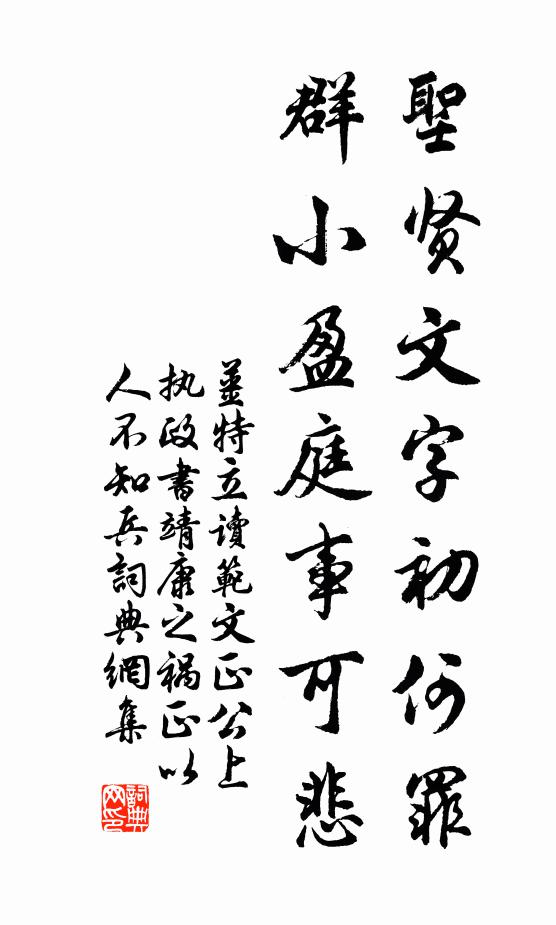 聖贤文字初何罪
群小盈庭事可悲
薑特立读範文正公上
执政書靖康之禍正以
人不知兵詞典網集
詞典网印